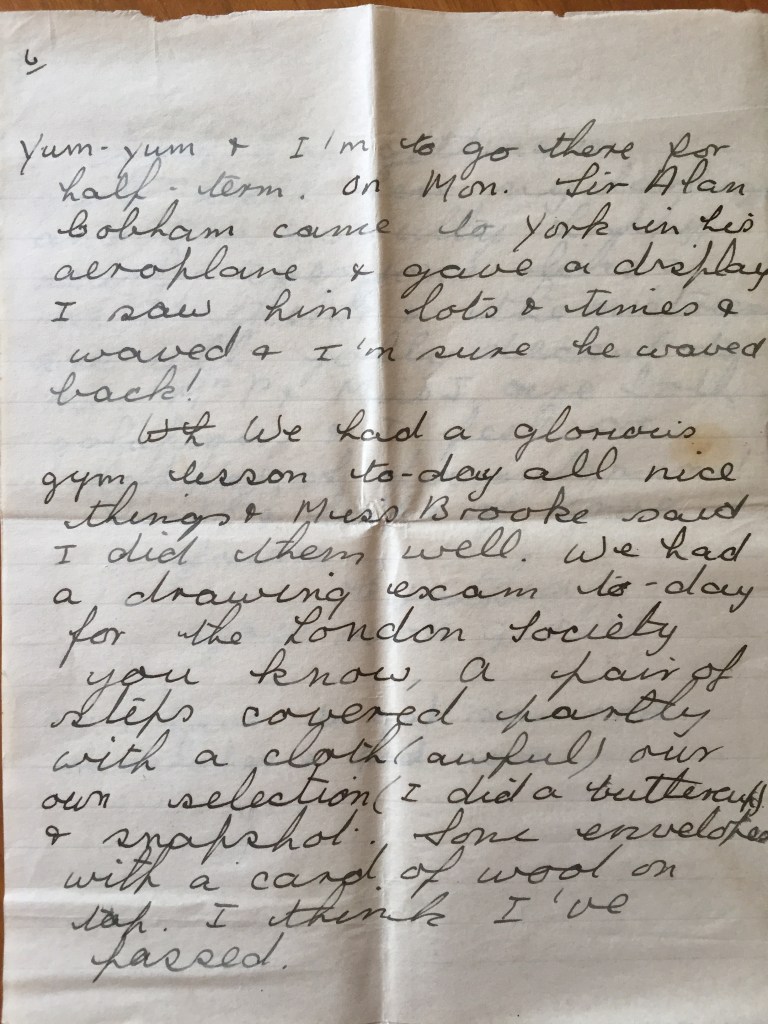 6
Yum-yum & I'm to go there for
half-term. On Mon. Sir Alan
Cobham came to York in his
aeroplane & gave a display
I saw him lots & times &
waved & I'm sure he waved
back!
We had a glorious
gym lesson to-day all nice
things & Miss Brooke said
I did them well. We had
a drawing exam to-day
for the London Society
you know, A pair of
steps covered partly
with a cloth (awful) our
own selection (I did a buttercup)
& snapshot. Some envelopes
with a card of wool on
top. I think I've
passed.